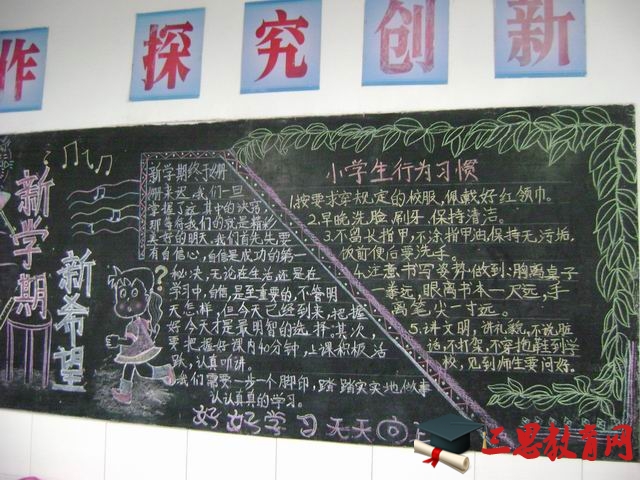 作 探 究 创 新
新学期
新希望
新学期终于
来迟,我们一旦
掌握了这其中的诀窍,
那等待我们的就是精彩
美好的明天,我们首先要
有自信心,自信是成功的第一
秘决,无论在生活,还是在
学习中,自信是至重要的,不管明
天怎样,但今天已经到来,把握
好今天才是最明智的选择,其次,
要把握好课内40分钟,上课积极活
跃,认真听讲。
我们需要一步一个脚印,踏踏实实地做事
认认真真的学习。
好好学习天天向
小学生行为习惯
1.按要求穿规定的校服,佩戴好红领巾。
2.早晚洗脸,刷牙,保持清洁。
3.不留长指甲,不涂指甲油,保持无污垢,
饭前便后要洗手。
4.注意书写姿势,做到:胸离桌子
一拳远,眼离书本一尺远,手
离笔尖一寸远。
5.讲文明,讲礼貌,不说脏
话,不打架,不穿拖鞋到学
校,见到师生要问好。
三思教育网